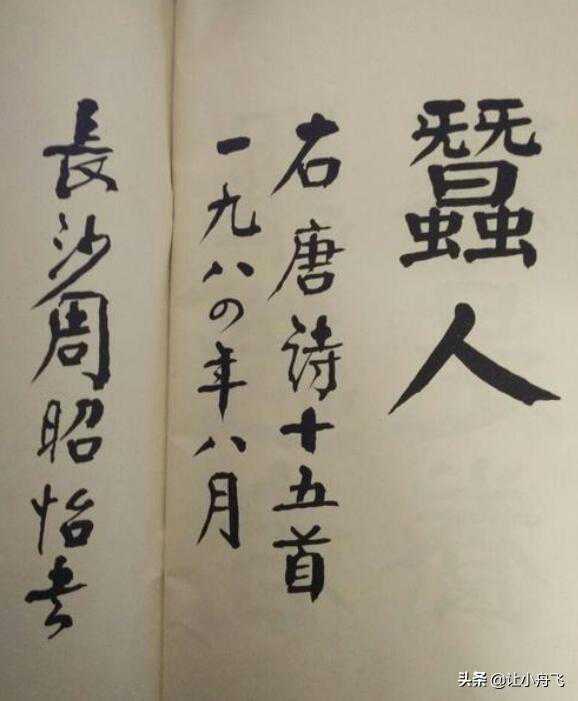 蠶人
右唐诗十五首
一九八四年八月
長沙周昭怡书
头条 @让小舟飞